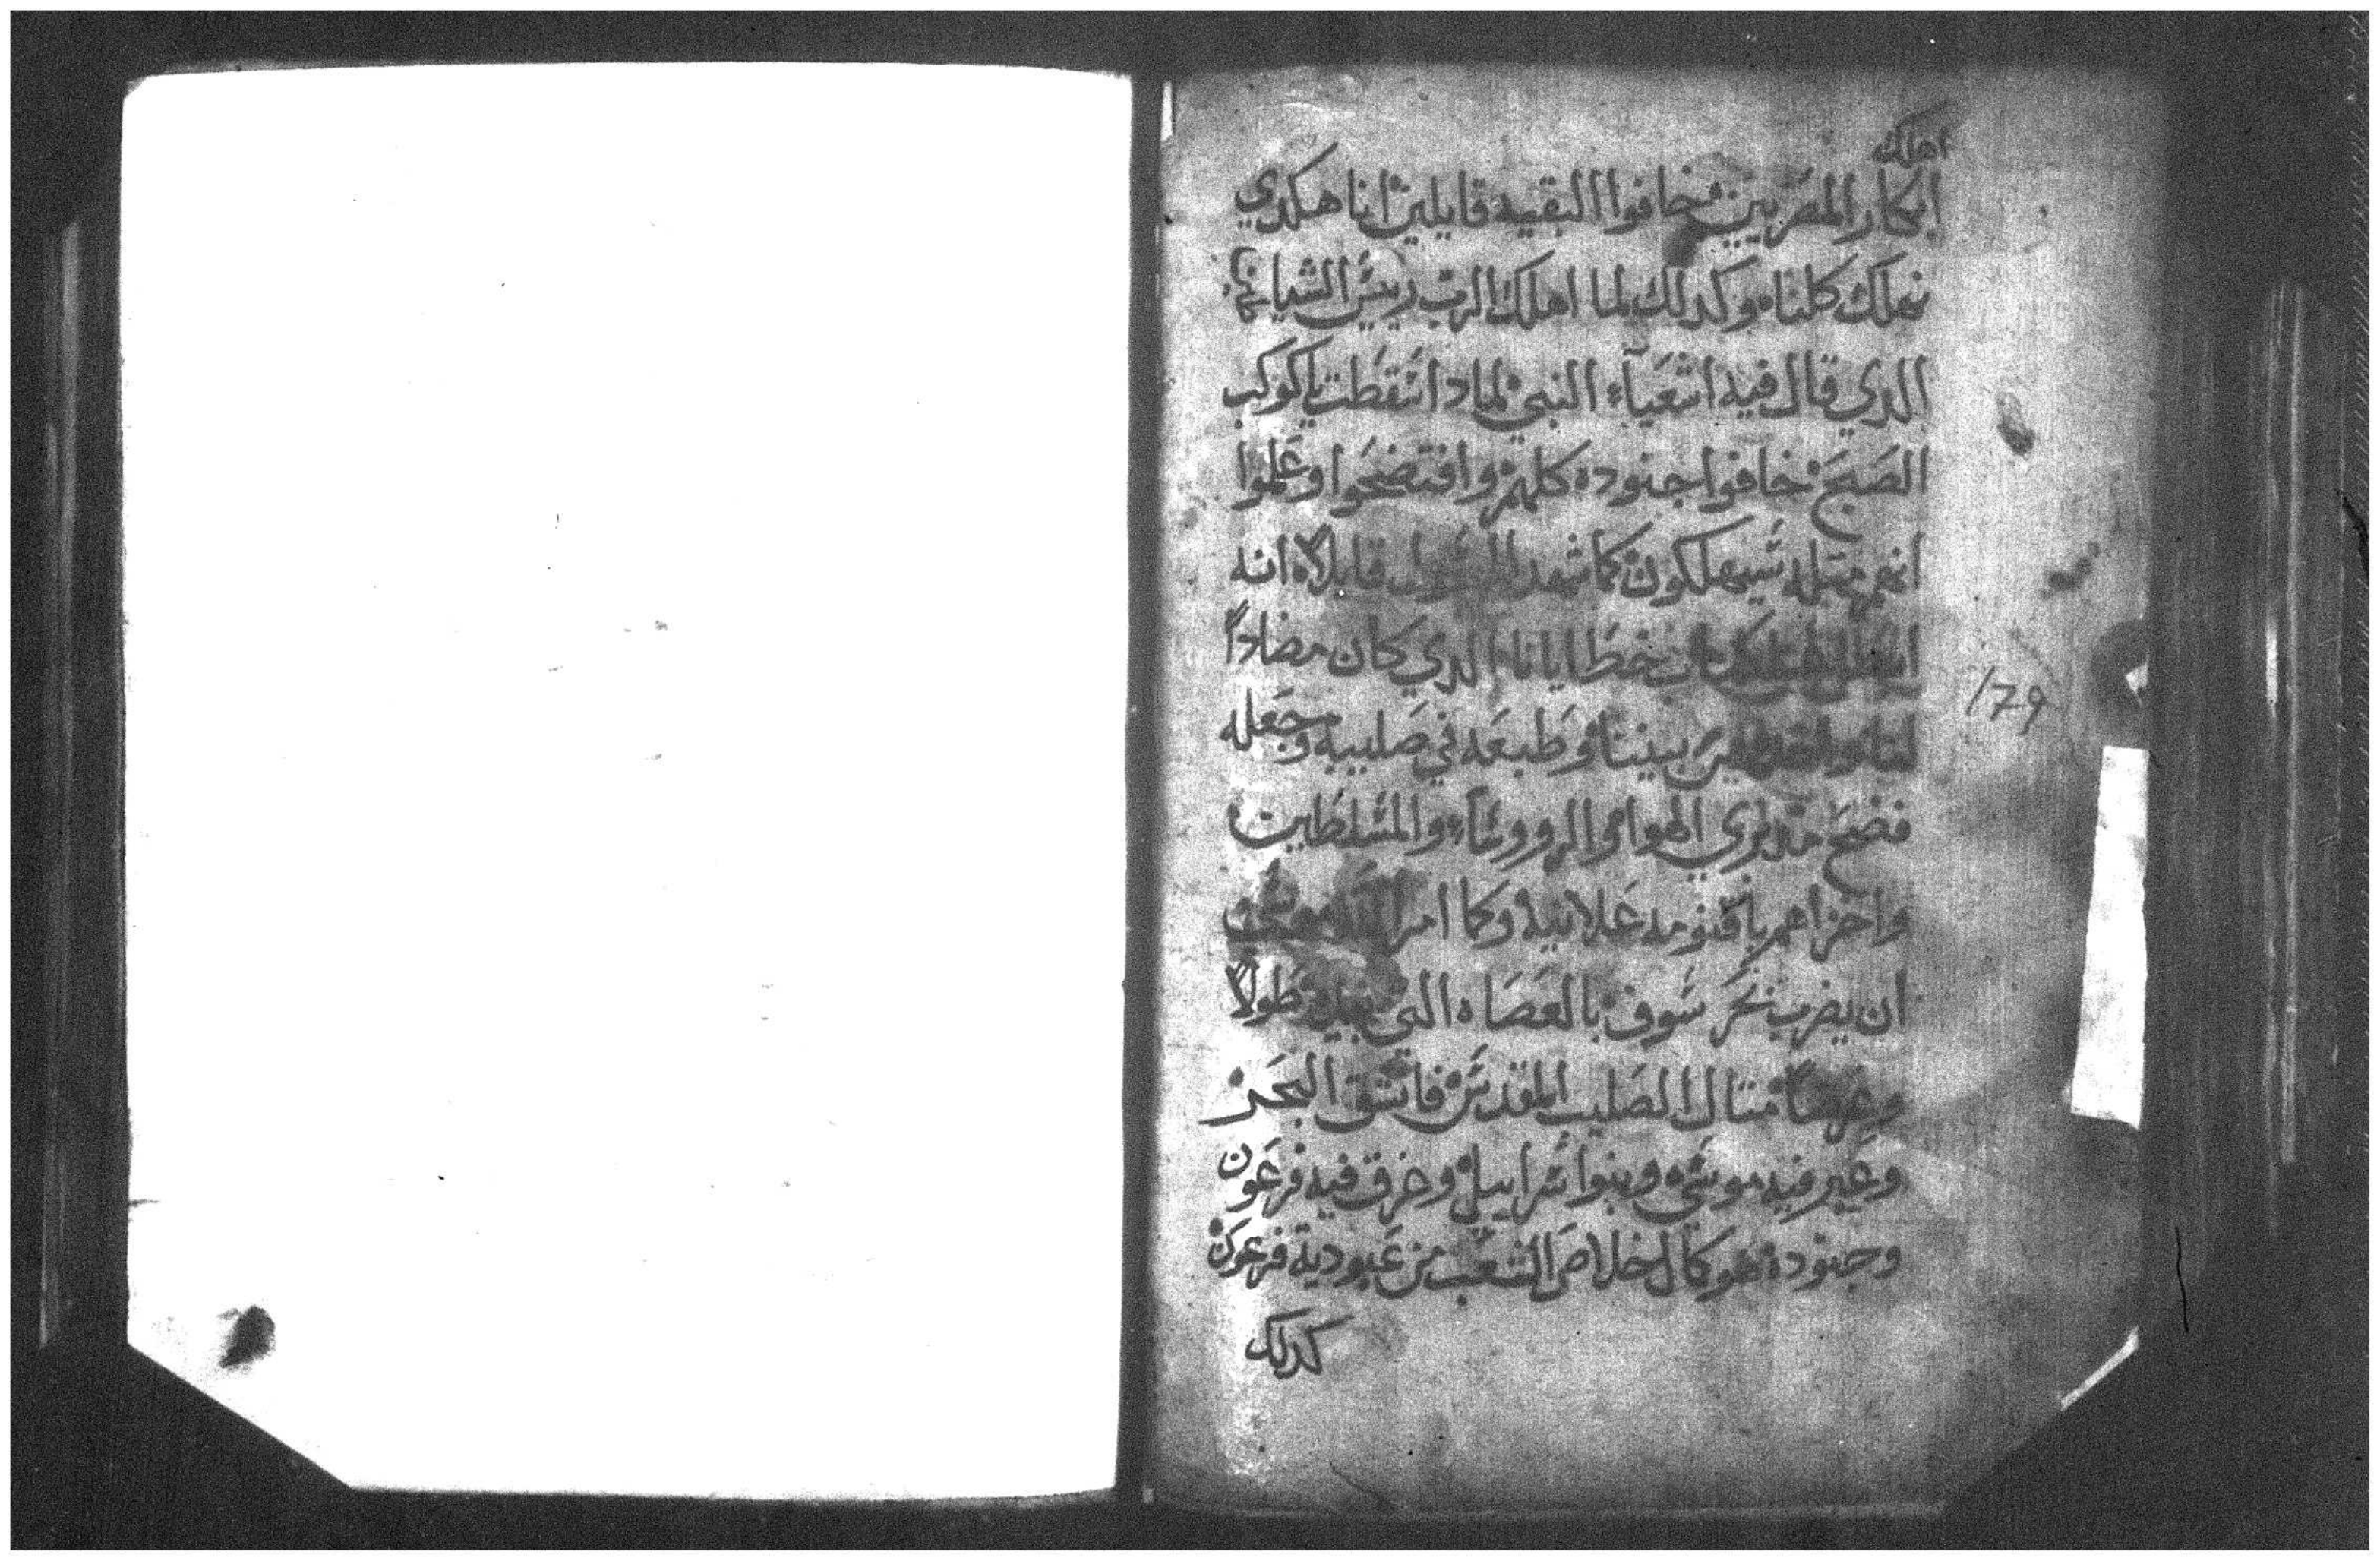 اهلك
ابكار المصريين خافوا البقيه قايلين اننا هكدي
نهلك كلنا وكدلك لما اهلك الرب رييس الشياطين
الدي قال فيه اشعياء النبي لمادا سقطت ياكوكب
الصبح خافوا جنوده كلهم وافتضحوا وعلموا
انهم مثله سيهلكون كما شهد الرسول قايلا انه
خطايانا الدي كان مضادا
لنا بيننا وطبعه في صليبه وجعله
فضح مدبري الهوا والرووساء والمسلطين
واخزاهم باقنومه علانيه وكما امر
ان يضرب بحر سوف بالعصاه التي طولا
وعرضا متال الصليب المقدس فانشق البحر
وعبر فيه موسى وبنوا سراييل وغرق فيه فرعون
وجنوده هو كمال خلاص الشعب من عبودية فرعون
كدلك
179